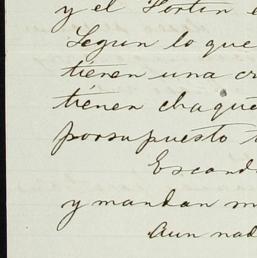 y el Fortin e
Segun lo que
tienen una cr
tienen chaque
porsupuesto
Escand
y mandan m
Aun nad